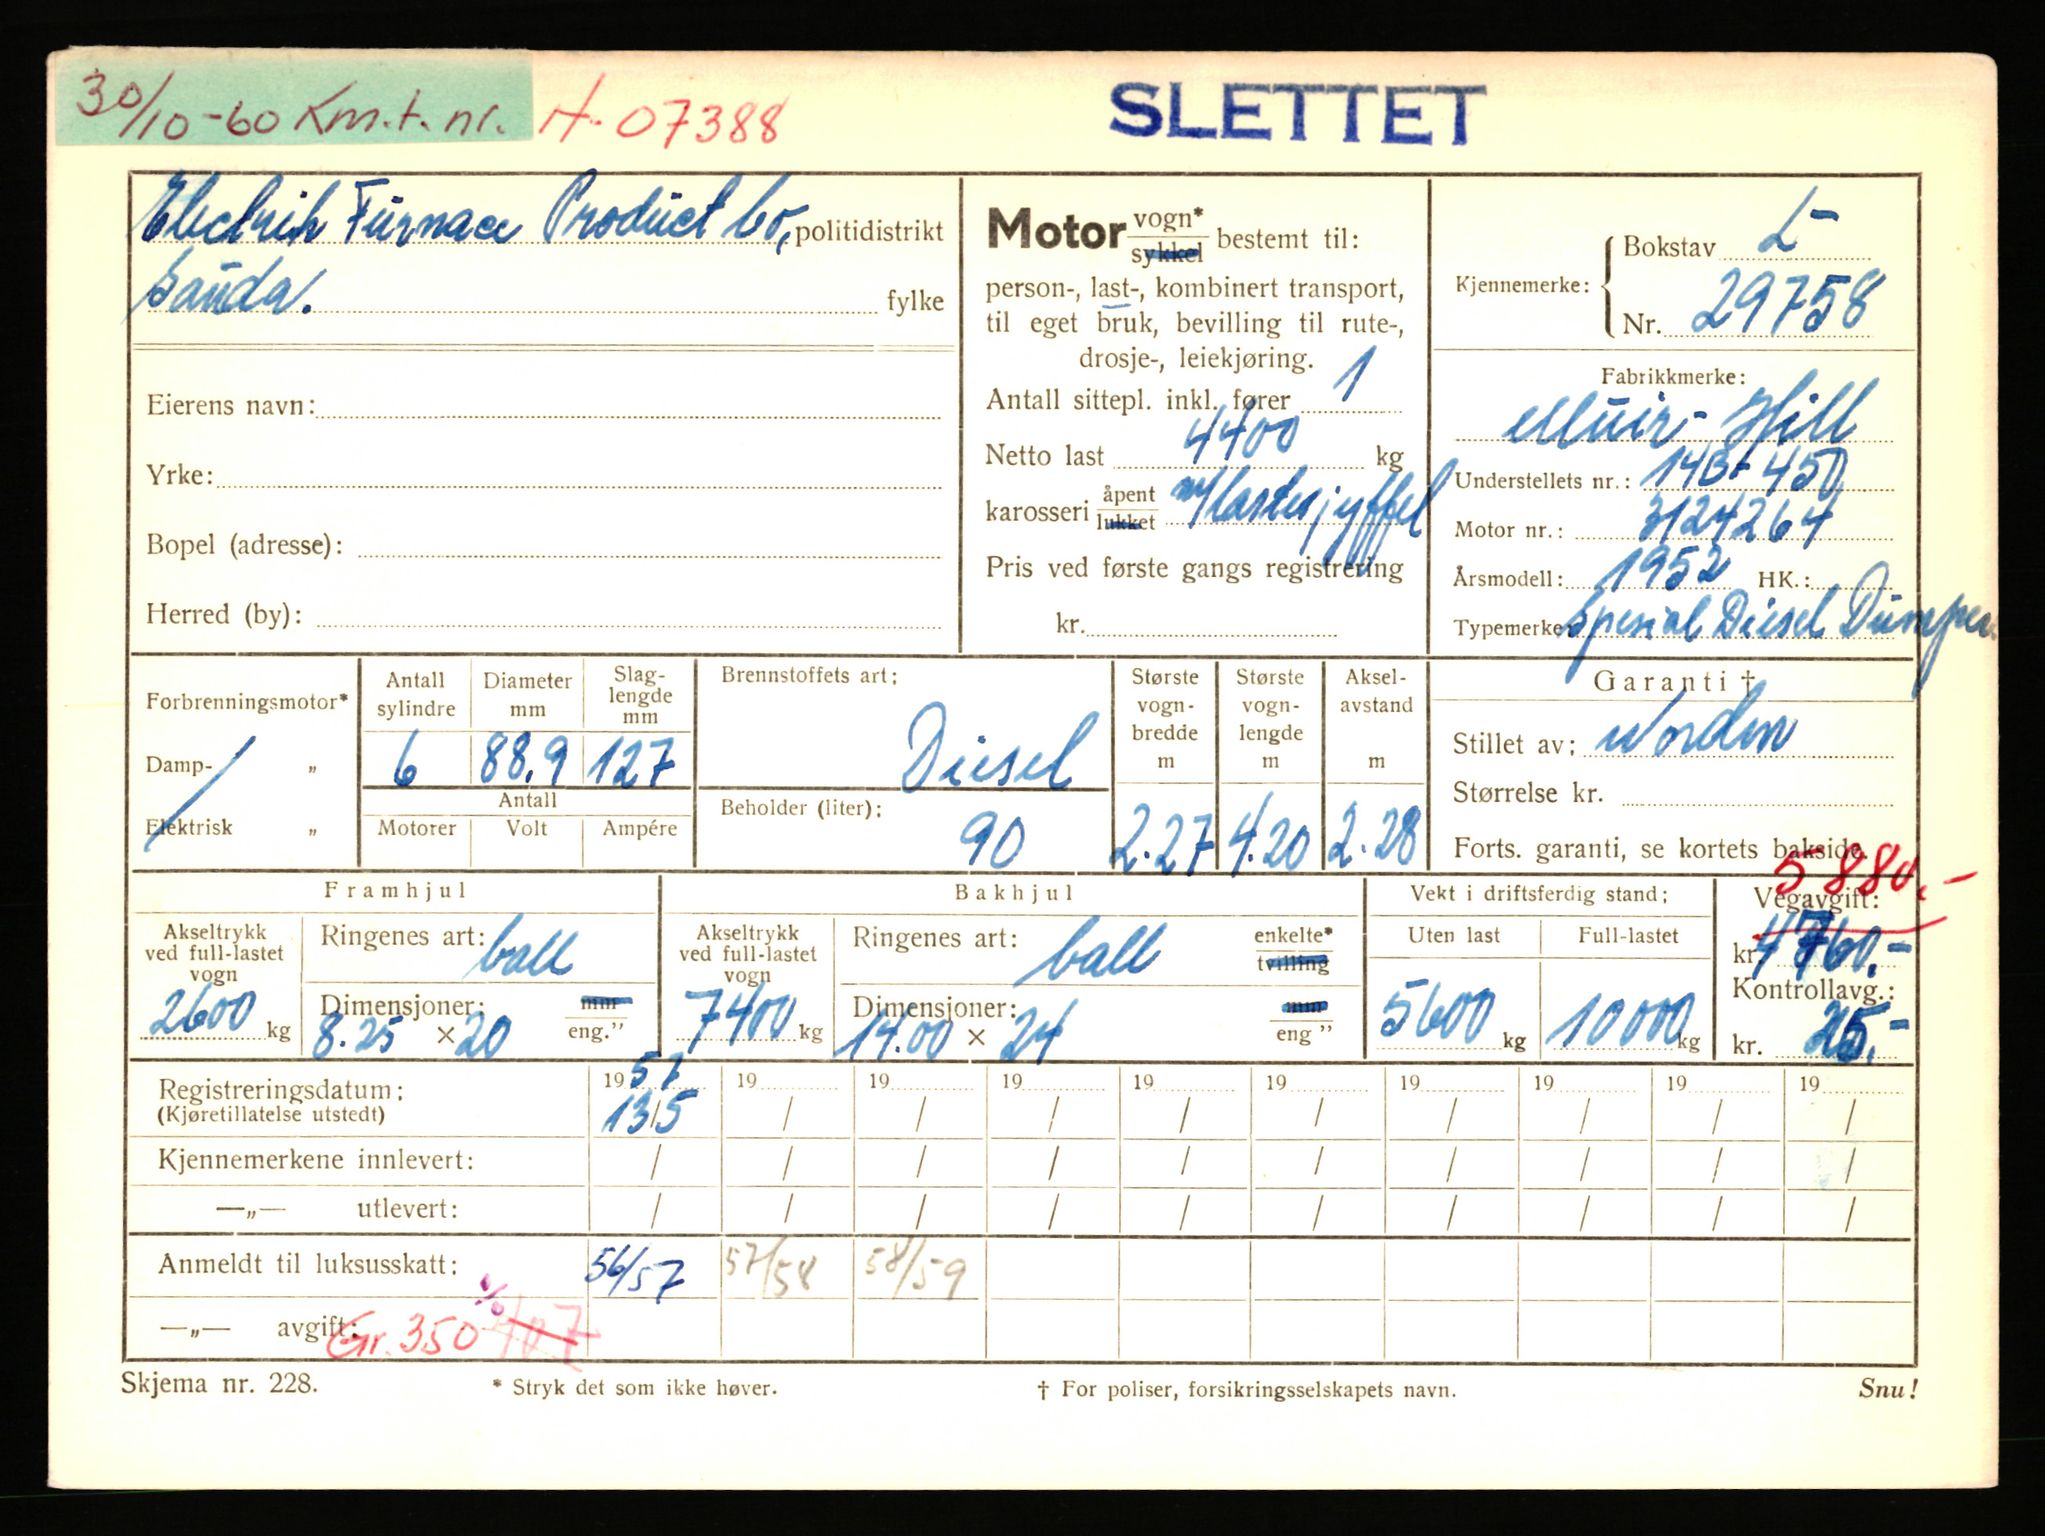 30/10-60 Km.t. nr. H-07388
SLETTET
Electrik Furnace Product Co, politidistrikt
Sauda. fylke
Eierens navn:
Yrke:
Bopel (adresse):
Herred (by):
Motor vogn* sykkel bestemt til:
person-, last-, kombinert transport,
til eget bruk, bevilling til rute-,
drosje-, leiekjøring.
Antall sittepl. inkl. fører 1
Netto last 4400 kg
karosseri åpent lukket m/lastesjyffel
Pris ved første gangs registrering
kr.
Kjennemerke: Bokstav L-
Nr. 29758
Fabrikkmerke:
Muir-Hill
Understellets nr.: 14B-450
Motor nr.: 3124264
Årsmodell: 1952 HK.:
Typemerke: Spesial Diesel Dumper
Forbrenningsmotor*
Damp- „
Elektrisk „
Antall sylindre 6
Diameter mm 88,9
Slag-lengde mm 127
Antall
Motorer Volt Ampére
Brennstoffets art: Diesel
Beholder (liter): 90
Største vogn-bredde m 2.27
Største vogn-lengde m 4.20
Aksel-avstand m 2.28
Garanti †
Stillet av: Norden
Størrelse kr.
Forts. garanti, se kortets bakside.
Framhjul
Akseltrykk ved full-lastet vogn 2600 kg
Ringenes art: ball
Dimensjoner: 8.25 × 20 mm eng."
Bakhjul
Akseltrykk ved full-lastet vogn 7400 kg
Ringenes art: ball enkelte* tvilling
Dimensjoner: 14.00 × 24 mm eng "
Vekt i driftsferdig stand:
Uten last 5600 kg
Full-lastet 10000 kg
5880,-
Vegavgift:
kr. 4760,-
Kontrollavg.:
kr. 25,-
Registreringsdatum: 1957 19 19 19 19 19 19 19 19 19
(Kjøretillatelse utstedt) 13/5 / / / / / / / / /
Kjennemerkene innlevert: / / / / / / / / / /
—„— utlevert: / / / / / / / / / /
Anmeldt til luksusskatt: 56/57 57/58 58/59
—„— avgift: Gr. 350
Skjema nr. 228. * Stryk det som ikke høver. † For poliser, forsikringsselskapets navn. Snu!